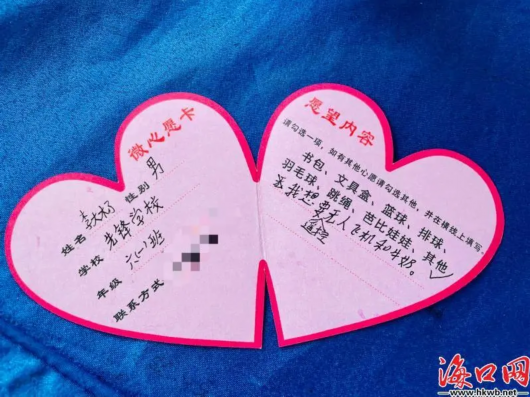 微心愿卡
姓名 性别 男
学校 先锋学校
年级 六(1)班
联系方式
愿望内容
请勾选一项，如有其他心愿请勾选其他，并在横线上填写。
书包、文具盒、篮球、排球、
羽毛球、跳绳、芭比娃娃、其他✓
我想要无人飞机和牛奶。
遥控
海口网
www.hkwb.net